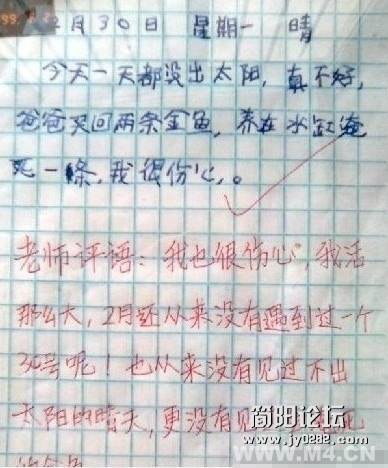 2月30日 星期一 晴
今天一天都没出太阳，真不好，
爸爸买回两条金鱼，养在水缸淹
死一條，我很伤心。
老师评语：我也很伤心，我活
那么大，2月还从来没有遇到过一个
30号呢！也从来没有见过不出
太阳的晴天，更没有见
简阳论坛
www.jy0282.com
WWW.M4.CN